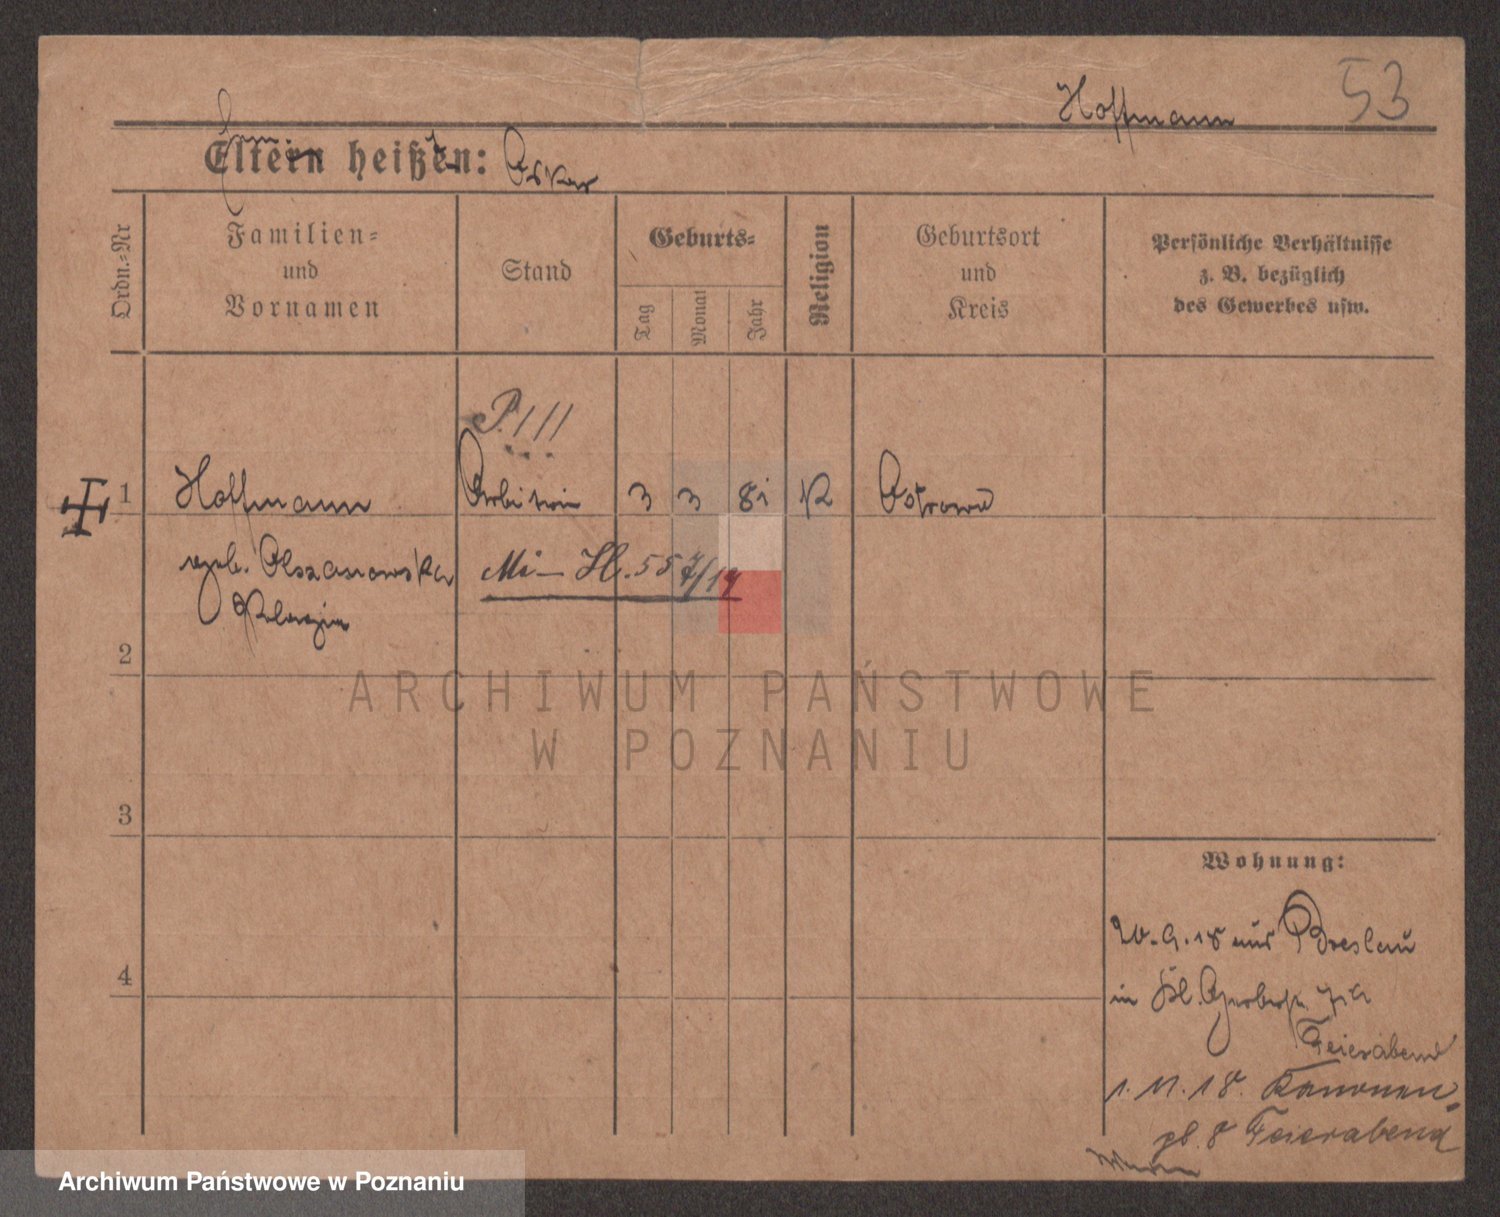 Hoffmann 53
Eltern heißen: Oskar
Ordn.-Nr
Familien-
und
Vornamen
Stand
Geburts-
Tag
Monat
Jahr
Religion
Geburtsort
und
Kreis
Persönliche Verhältnisse
z. B. bezüglich
des Gewerbes usw.
P. III
1 Hoffmann Arbeiterin 3 3 81 K Ostrowo
geb. Olszanowska
2
ARCHIWUM PAŃSTWOWE
W POZNANIU
3
Wohnung:
20.9.18 aus Breslau
4
in Kl. Gerberstr. 7a
Feierabend
1.11.18. Kanonen-
pl. 8 Feierabend
Archiwum Państwowe w Poznaniu